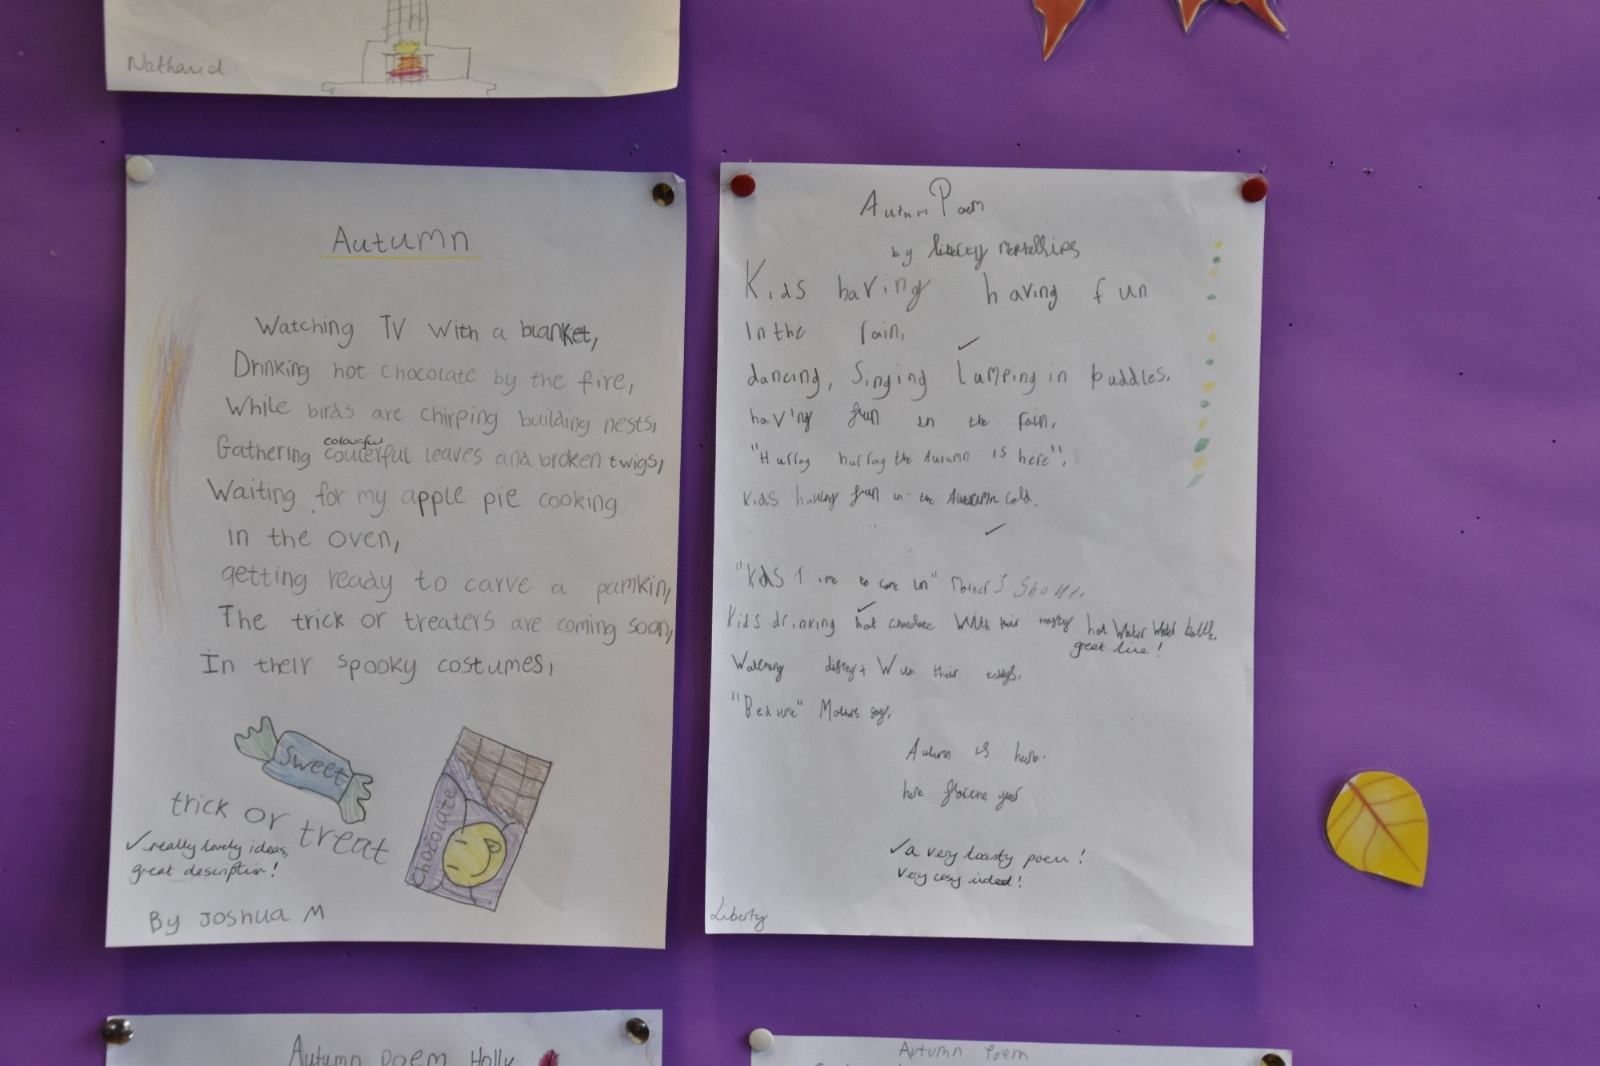 Autumn
Watching TV with a blanket,
Drinking hot chocolate by the fire,
While birds are chirping building nests,
colourful
Gathering coulerful leaves and broken twigs,
Waiting for my apple pie cooking
in the oven,
getting ready to carve a pamkin,
The trick or treaters are coming soon,
In their spooky costumes,
Sweet
Chocolate
trick or treat
✓ really lovely ideas,
great description!
By Joshua M
Autum Poem
by liberty
Kids having having fun
In the rain,
dancing, Singing Lumping in puddles.
having fun in the rain,
"Hurray hurray the Autumn is here",
Kids having fun in the Autumn cold.
"Kids time to come in" Mothers Shout.
Kids drinking hot chocolate With their hot Water bottle,
great line!
Watching With their teddys,
"Bedtime" Mothers say,
Autumn is here.
here
✓ a very toasty poem!
very cosy indeed!
Liberty
Autumn Poem Holly
Autumn Poem